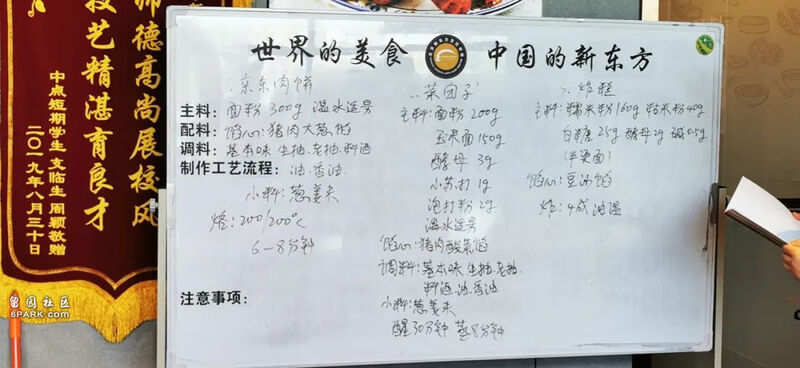 师德高尚展校风
技艺精湛育良才
中点短期学生 支临生 周颖敬赠
二〇一九年八月三十日
世界的美食 中国的新东方
1.京东肉饼
主料:面粉300g 温水适量
配料:馅心:猪肉大葱馅
调料:基本味 生抽.老抽.料酒
制作工艺流程:油.香油.
小料:葱姜末
烙:200/200℃
6-8分钟
注意事项:
2.菜团子
主料:面粉200g
玉米面150g
酵母 3g
小苏打 1g
泡打粉 2g
温水适量
馅心:猪肉酸菜馅
调料:基本味 生抽.老抽.
料酒.油.香油
小料:葱姜末
醒30分钟 蒸8分钟
3.炸糕
主料:糯米粉160g 粘米粉40g
白糖25g 酵母2g 碱0.5g
(半烫面)
馅心:豆沙馅
炸:4成油温
留园社区
6PARK.com